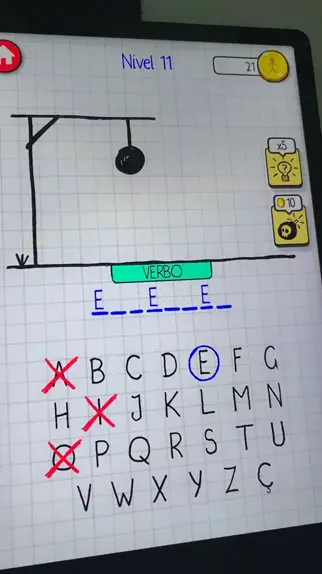 Nível 11
21
x5
10
VERBO
E _ _ E _ _ E _
A B C D E F G
H I J K L M N
O P Q R S T U
V W X Y Z Ç